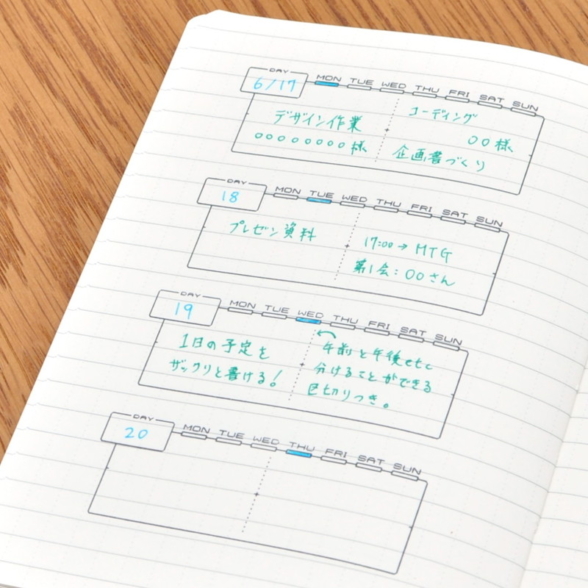 DAY
6/17
MON TUE WED THU FRI SAT SUN
デザイン作業
○○○○○○○○様
コーディング
○○様
企画書づくり
DAY
18
MON TUE WED THU FRI SAT SUN
プレゼン資料
17:00→MTG
第1会:○○さん
DAY
19
MON TUE WED THU FRI SAT SUN
1日の予定を
ザックリと書ける!
午前と午後etc
分けることができる
区切りつき。
DAY
20
MON TUE WED THU FRI SAT SUN